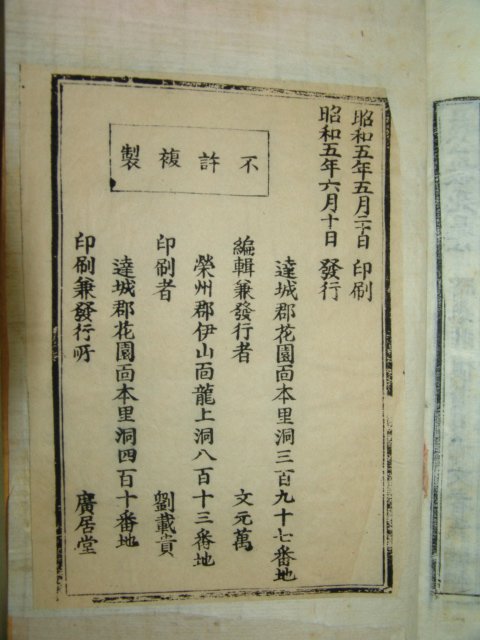 昭和五年五月二十日 印刷
昭和五年六月十日 發行
不許複製
達城郡花園面本里洞三百九十七番地
編輯兼發行者 文元萬
榮州郡伊山面龍上洞八百十三番地
印刷者 劉載貢
達城郡花園面本里洞四百十番地
印刷兼發行所 廣居堂